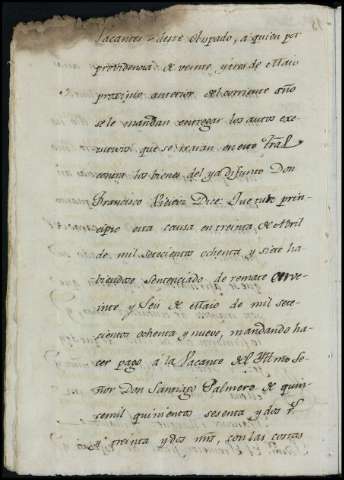 Vacantes de este Obispado, a quien por
providencia de veinte y tres de Maio
proximo anterior del corriente año
se le mandan entregar los autos exe-
cutivos que se siguen en este Tral
contra los bienes del ya difunto Don
Francisco Dice: Que tubo prin-
cipio esta causa en treinta de Abril
de mil setecientos ochenta y siete ha-
biendose sentenciado de remate en ve-
inte y Seis de Maio de mil sete-
cientos ochenta y nueve, mandando ha-
cer pago à la Vacante del Yltmo Se-
ñor Don Santiago Palmero de quin-
ce mil quinientos sesenta y dos rs
y treinta y dos mrs, con las costas